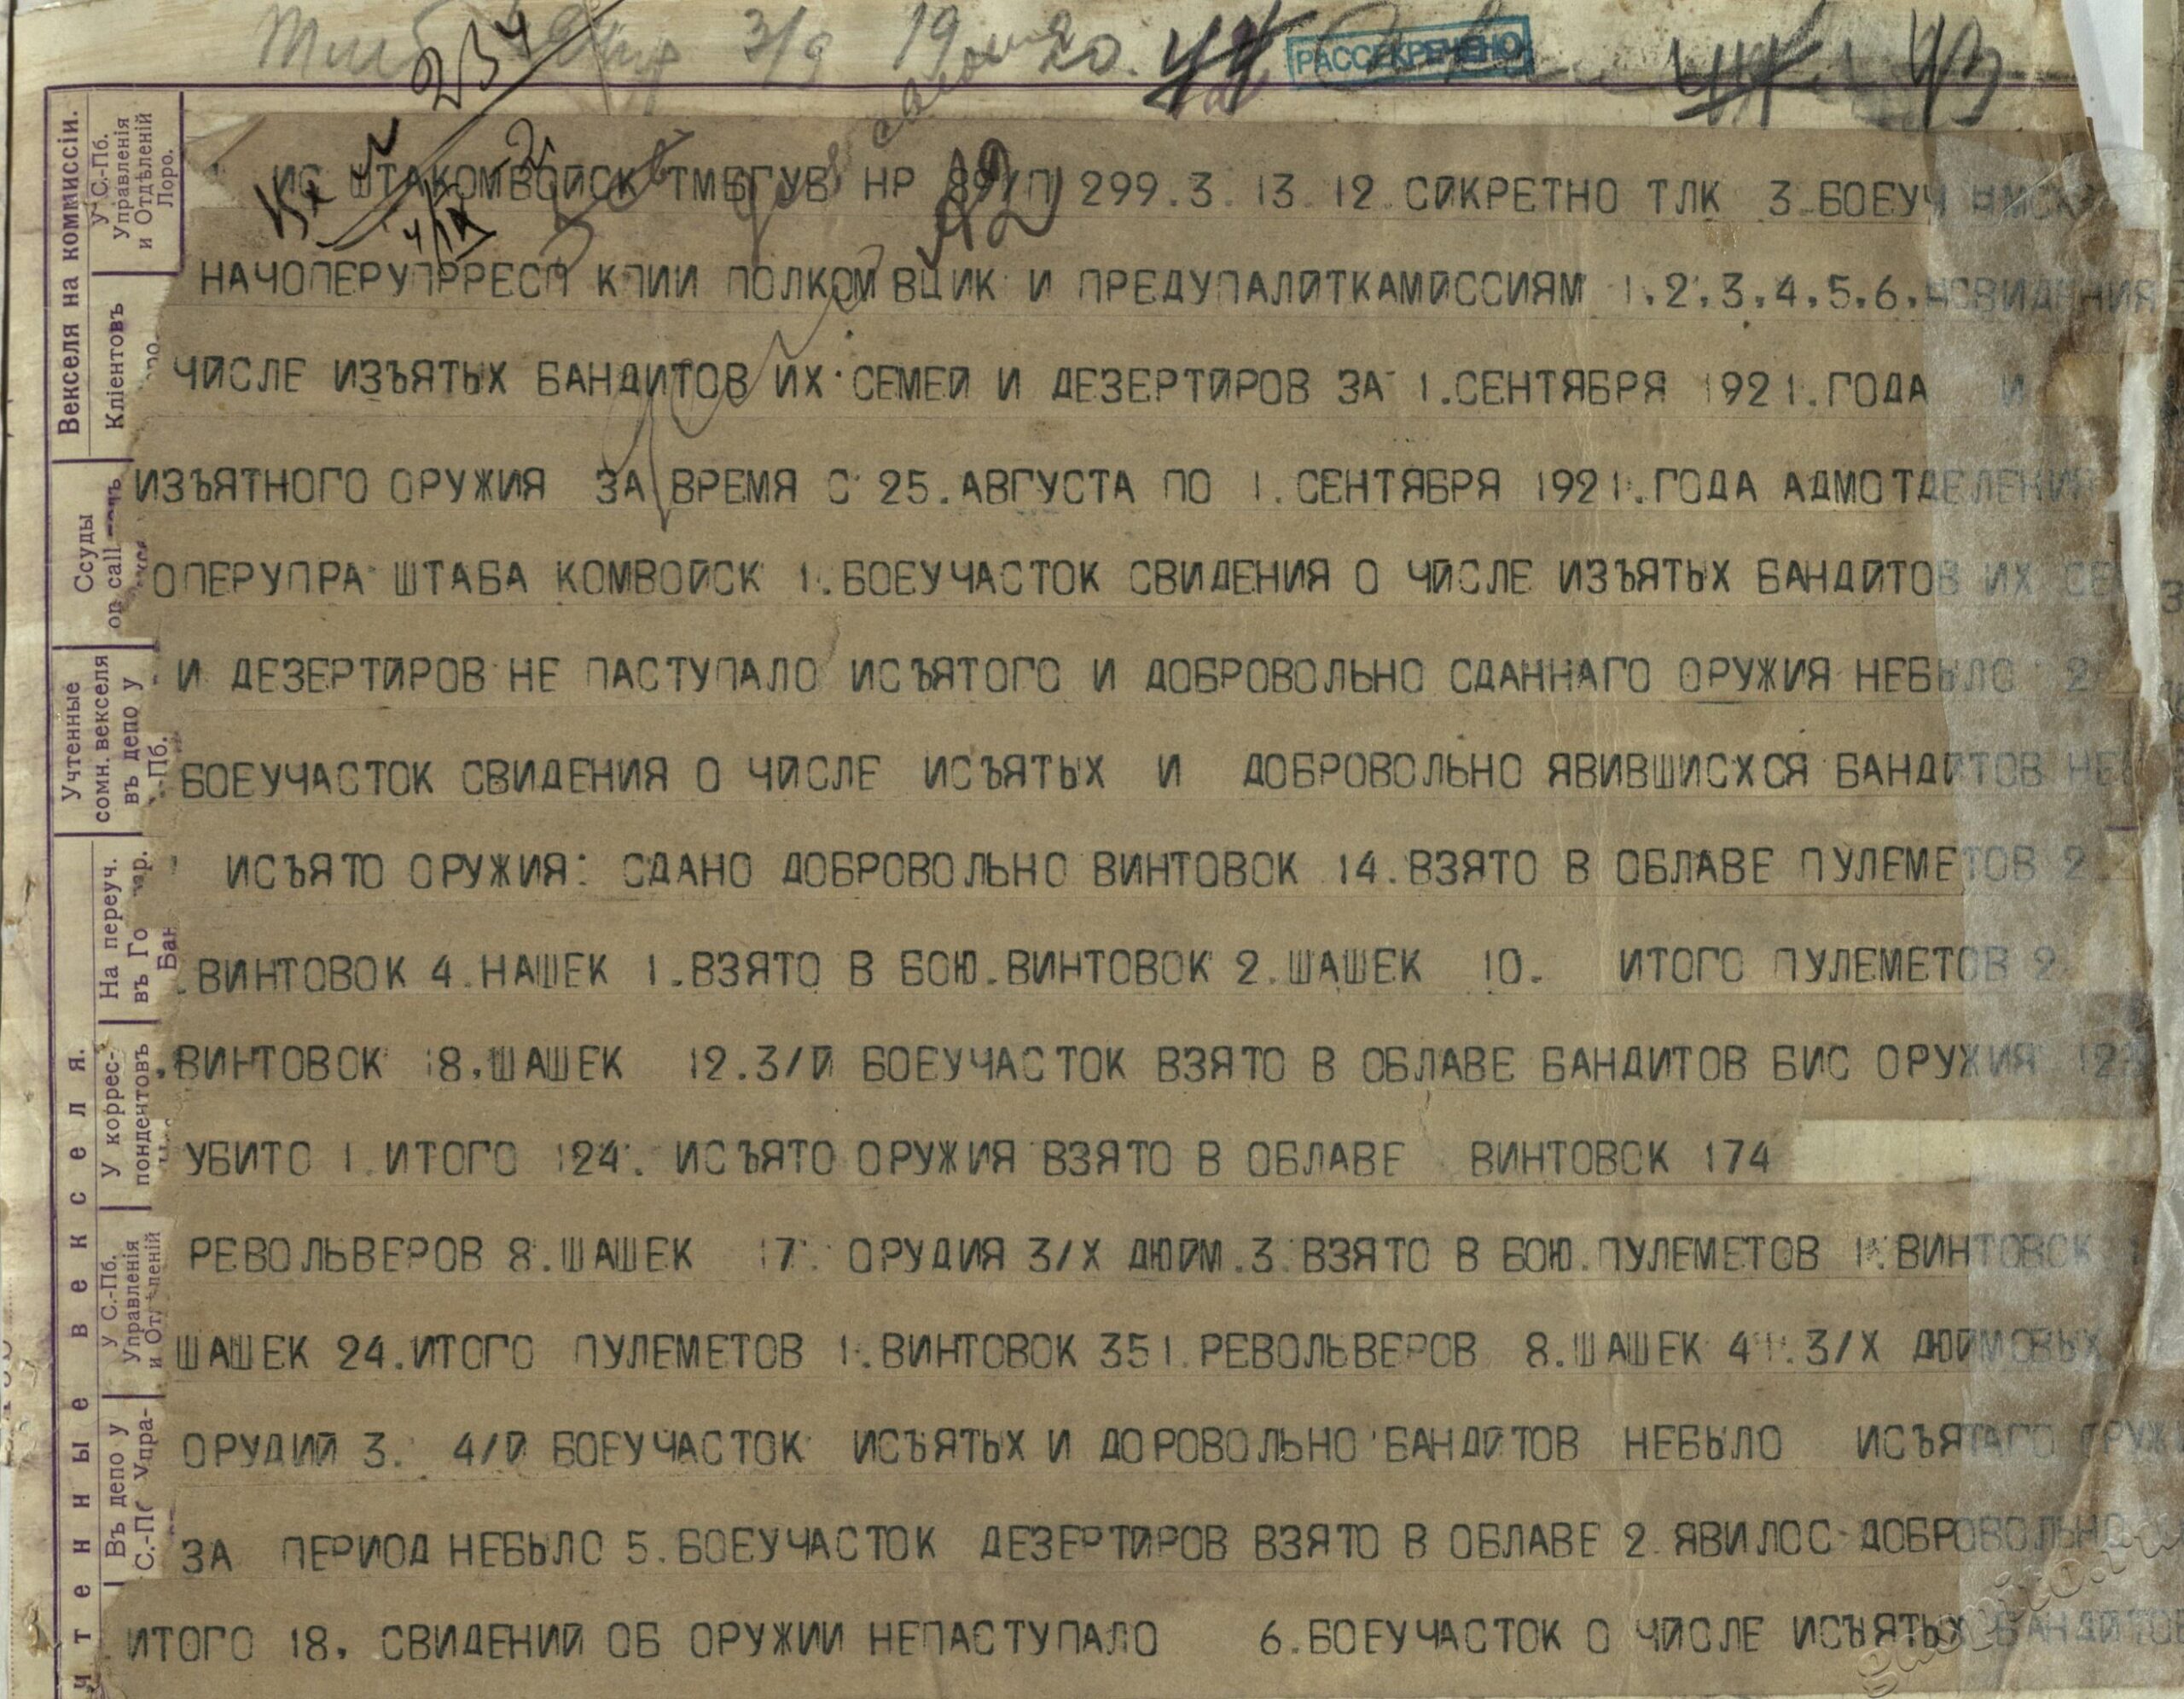 3/9 19 20. 44 РАССЕКРЕЧЕНО 44 43
234
ИС ШТАКОМВОЙСК ТМБГУБ НР 299.3. 13 12. СЙКРЕТНО ТЛК 3.БОЕУЧ
НАЧОПЕРУПРРЕСП КПИИ ПОЛКОМ ВЦИК И ПРЕДУПАЛЙТКАМЙССИЯМ 1.2.3.4.5.6.
ЧЙСЛЕ ИЗЪЯТЫХ БАНДИТОВ ИХ СЕМЕЙ И ДЕЗЕРТЙРОВ ЗА 1.СЕНТЯБРЯ 1921.ГОДА И
ИЗЪЯТНОГО ОРУЖИЯ ЗА ВРЕМЯ С 25.АВГУСТА ПО 1.СЕНТЯБРЯ 1921.ГОДА АДМОТДЕЛЕНИЕ
ОПЕРУПРА ШТАБА КОМВОЙСК 1.БОЕУЧАСТОК СВИДЕНИЯ О ЧЙСЛЕ ИЗЪЯТЫХ БАНДЙТОВ ИХ СЕ
И ДЕЗЕРТЙРОВ НЕ ПАСТУПАЛО ИСЪЯТОГО И ДОБРОВОЛЬНО СДАННАГО ОРУЖИЯ НЕБЫЛО 2
БОЕУЧАСТОК СВИДЕНИЯ О ЧЙСЛЕ ИСЪЯТЫХ И ДОБРОВОЛЬНО ЯВИВШИСХСЯ БАНДЙТОВ НЕ
ИСЪЯТО ОРУЖИЯ: СДАНО ДОБРОВОЛЬНО ВИНТОВОК 14.ВЗЯТО В ОБЛАВЕ ПУЛЕМЕТОВ 2
.ВИНТОВОК 4.НАШЕК 1.ВЗЯТО В БОЮ.ВИНТОВОК 2.ШАШЕК 10. ИТОГО ПУЛЕМЕТОВ 2
.ВИНТОВОК 18.ШАШЕК 12.3/Й БОЕУЧАСТОК ВЗЯТО В ОБЛАВЕ БАНДИТОВ БИС ОРУЖИЯ
УБИТО 1 ИТОГО 124. ИСЪЯТО ОРУЖИЯ ВЗЯТО В ОБЛАВЕ ВИНТОВОК 174
РЕВОЛЬВЕРОВ 8.ШАШЕК 17 ОРУДИЯ 3/Х ДЮЙМ.3.ВЗЯТО В БОЮ.ПУЛЕМЕТОВ 1.ВИНТОВОК
ШАШЕК 24.ИТОГО ПУЛЕМЕТОВ 1.ВИНТОВОК 351.РЕВОЛЬВЕРОВ 8.ШАШЕК 41.3/Х ДЮЙМОВЫХ
ОРУДИЙ 3. 4/Й БОЕУЧАСТОК ИСЪЯТЫХ И ДОРОВОЛЬНО БАНДЙТОВ НЕБЫЛО ИСЪЯТАГО ОРУЖ
ЗА ПЕРИОД НЕБЫЛО 5.БОЕУЧАСТОК ДЕЗЕРТЙРОВ ВЗЯТО В ОБЛАВЕ 2 ЯВИЛОС ДОБРОВОЛЬНО
ИТОГО 18. СВИДЕНИЙ ОБ ОРУЖИИ НЕПАСТУПАЛО 6.БОЕУЧАСТОК О ЧЙСЛЕ ИСЪЯТЫХ БАНДИТОВ
Векселя на коммиссіи.
У С.-Пб. Управленія и Отдѣленій Лоро.
Кліентовъ
Ссуды on call
Учтенные сомн. векселя въ депо у
На переуч. въ Го
У коррес-пондентовъ
У С.-Пб. Управленія
Въ депо у С.-П Упра-
чтенные векселя.
gaspito.ru